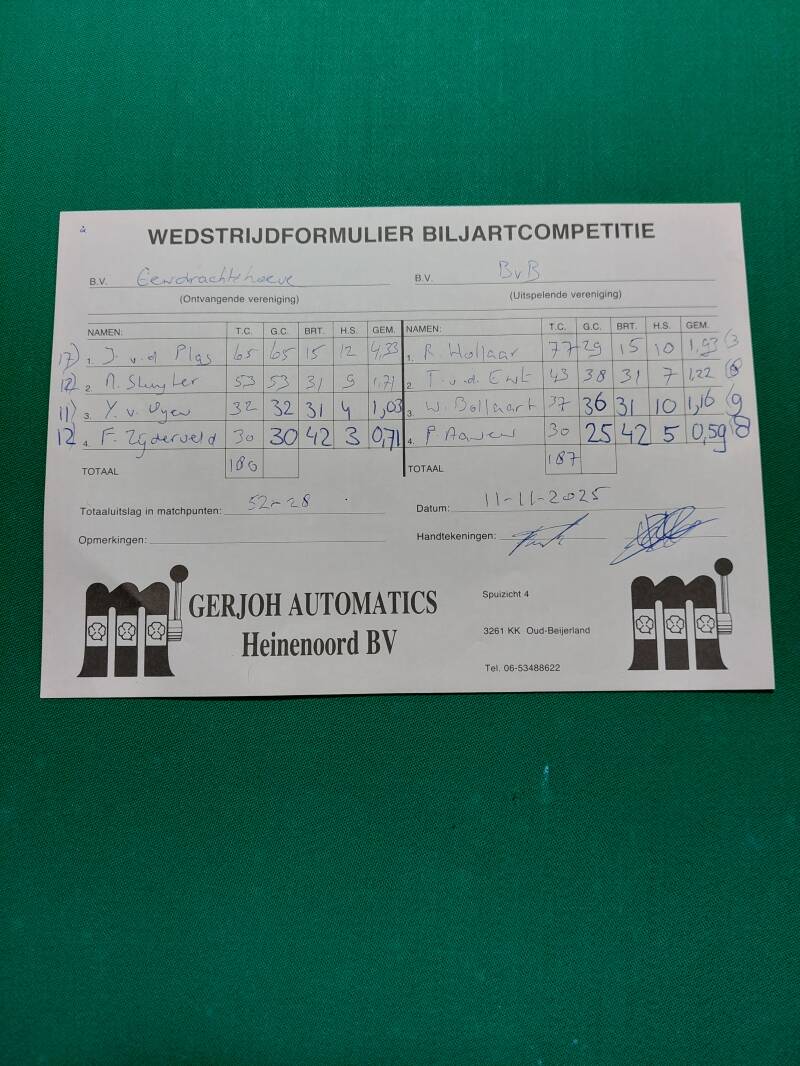 WEDSTRIJDFORMULIER BILJARTCOMPETITIE
B.V. Eendrachtshoeve B.V. BvB
(Ontvangende vereniging) (Uitspelende vereniging)
NAMEN: T.C. G.C. BRT. H.S. GEM. NAMEN: T.C. G.C. BRT. H.S. GEM.
17) 1. J. v.d Plas 65 65 15 12 4,33 1. R. Hollaar 77 29 15 10 1,93 (3
12) 2. 53 53 31 9 1,71 2. T. v.d. 43 38 31 7 1,22 (8
11) 3. Y. v. 32 32 31 4 1,03 3. W. Bollaart 37 36 31 10 1,16 (9
12) 4. F. Zijderveld 30 30 42 3 0,71 4. P. 30 25 42 5 0,59 (8
TOTAAL 180 TOTAAL 187
Totaaluitslag in matchpunten: 52-28 Datum: 11-11-2025
Opmerkingen: Handtekeningen:
GERJOH AUTOMATICS
Heinenoord BV
Spuizicht 4
3261 KK Oud-Beijerland
Tel. 06-53488622